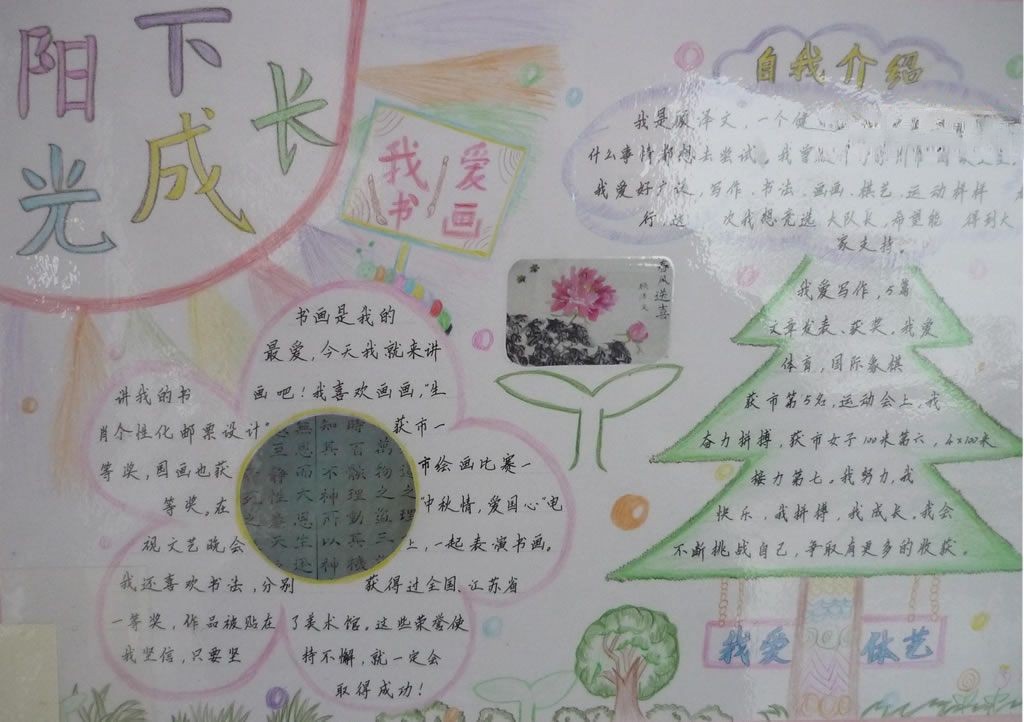 阳光下成长
我爱
书画
自我介绍
我是顾泽文,一个健
什么事情都想去尝试。我曾
我爱好广泛,写作、书法、画画、棋艺、运动样样
行,这次我想竞选大队长,希望能得到大
家支持。
春风送喜
书画是我的
最爱,今天我就来讲
讲我的书画吧!我喜欢画画,"生
肖个性化邮票设计"获市一
等奖,国画也获市绘画比赛一
等奖。在"中秋情,爱国心"电
视文艺晚会上,一起表演书画。
我还喜欢书法,分别获得过全国、江苏省
一等奖,作品被贴在了美术馆。这些荣誉使
我坚信,只要坚持不懈,就一定会
取得成功!
我爱写作,5篇
文章发表、获奖。我爱
体育,国际象棋
获市第5名,运动会上,我
奋力拼搏,获市女子100米第六,4x100米
接力第七。我努力,我
快乐,我拼搏,我成长。我会
不断挑战自己,争取有更多的收获。
我爱体艺